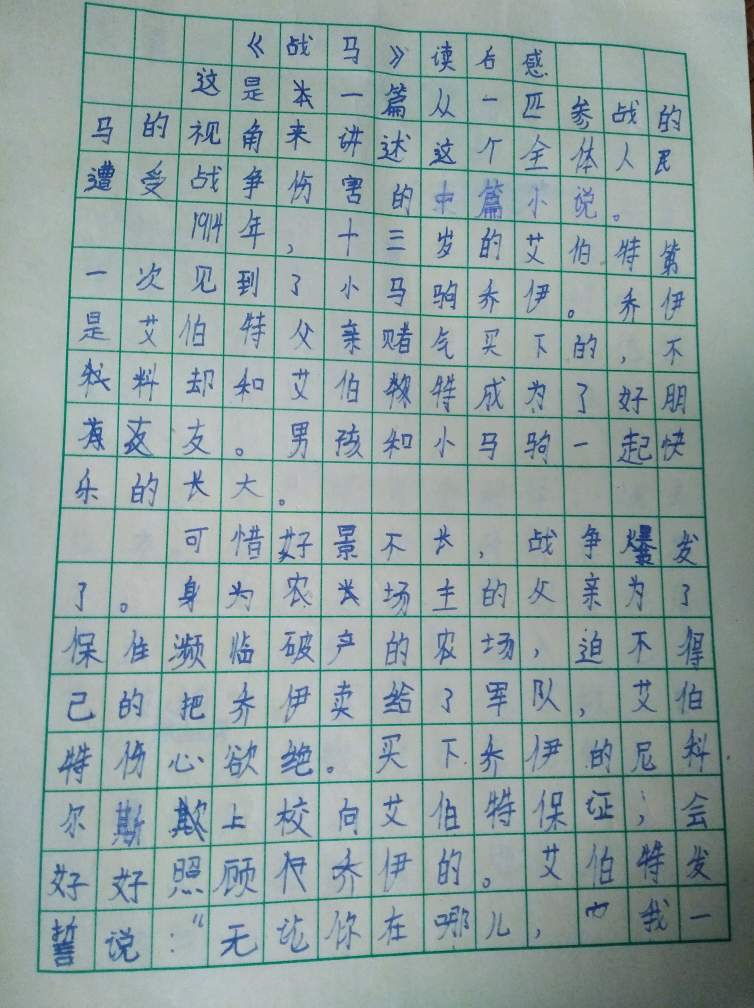 《战马》读后感
这是本一篇从一匹参战的
马的视角来讲述这个全体人民
遭受战争伤害的中篇小说。
1914年，十三岁的艾伯特第
一次见到了小马驹乔伊。乔伊
是艾伯特父亲赌气买下的，不
料却和艾伯特成为了好朋
友。男孩和小马驹一起快
乐的长大。
可惜好景不长，战争爆发
了。身为农场主的父亲为了
保住濒临破产的农场，迫不得
已的把乔伊卖给了军队，艾伯
特伤心欲绝。买下乔伊的尼科
尔斯上校向艾伯特保证，会
好好照顾乔伊的。艾伯特发
誓说："无论你在哪儿，我一